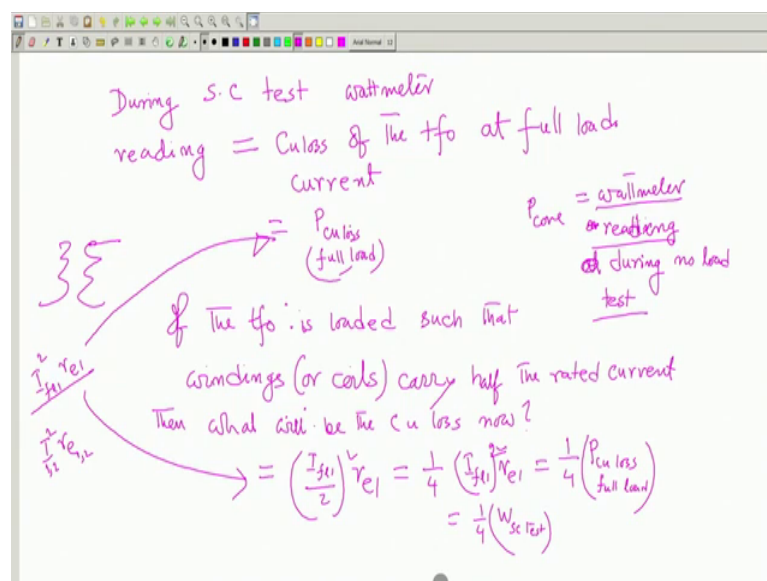 Arial Normal 12
During S.C test wattmeter
reading = Cu loss of The tfo at full load
current
= P cu loss
(full load)
P core = wattmeter
reading
during no load
test
If The tfo is loaded such that
windings (or coils) carry half The rated current
Then what will be the Cu loss now?
I²fl1 re1
I²fl2 re2
= (Ifl1/2)² re1 = 1/4 (Ifl1)² re1 = 1/4 (P cu loss full load)
= 1/4 (W sc test)